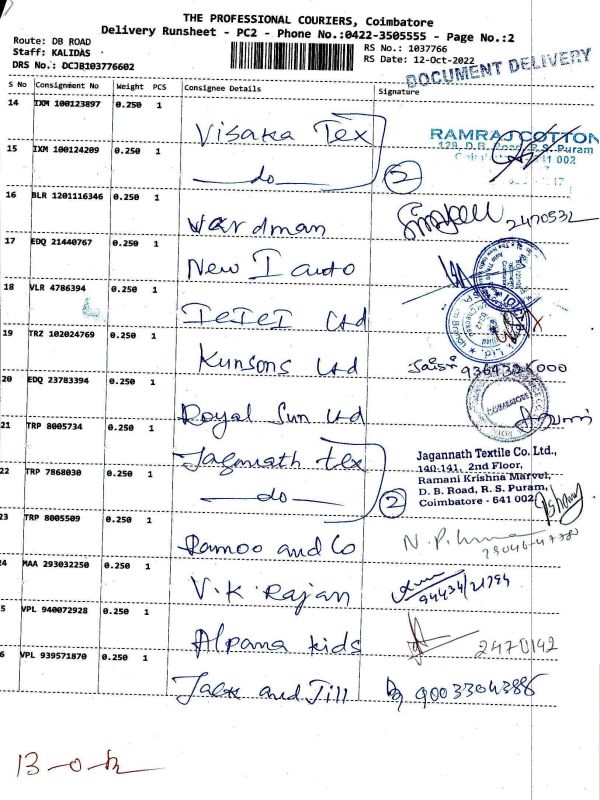 THE PROFESSIONAL COURIERS, Coimbatore
Delivery Runsheet - PC2 - Phone No.:0422-3505555 - Page No.:2
Route: DB ROAD
Staff: KALIDAS
DRS No.: DCJB103776602
RS No.: 1037766
RS Date: 12-Oct-2022
DOCUMENT DELIVERY
S No Consignment No Weight PCS Consignee Details Signature
14 IXM 100123897 0.250 1 Visaka Tex
RAMRAJ COTTON
129, D.B. Road, R.S. Puram
641 002
15 IXM 100124209 0.250 1 do 2
16 BLR 1201116346 0.250 1 Vardman 2470532
17 EDQ 21440767 0.250 1 New I auto
18 VLR 4786394 0.250 1 Ltd
19 TRZ 102024769 0.250 1 Kunsons Ltd
20 EDQ 23783394 0.250 1 Royal Sun Ltd
21 TRP 8005734 0.250 1 Jagnnath tex
Jagannath Textile Co. Ltd.,
140-141, 2nd Floor,
Ramani Krishna Marvel,
D. B. Road, R. S. Puram,
Coimbatore - 641 002
22 TRP 7868030 0.250 1 do 2
23 TRP 8005509 0.250 1 Ramoo and Co
24 MAA 293032250 0.250 1 V.K. Rajan 94434/21794
5 VPL 940072928 0.250 1 Alpana kids 2470142
6 VPL 939571870 0.250 1 Jack and Jill 9003304388
13-0-